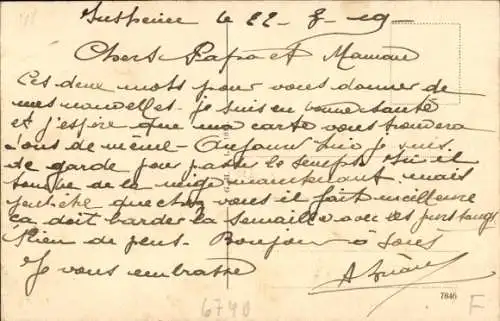 le 22-8-19-
Chers Papa et Maman
Ces deux mots pour vous donner de
mes nouvelles. je suis en bonne santé
et j'espère que ma carte vous trouvera
tous de meme - Aujour hui je suis
de garde pour passer le temps. Ici il
tombe de la neige maintenant mais
que chez vous il fait meilleure
ça doit barder la semaille avec ces
Rien de plus. Bonjour à tous
Je vous embrasse
7846
6740 F